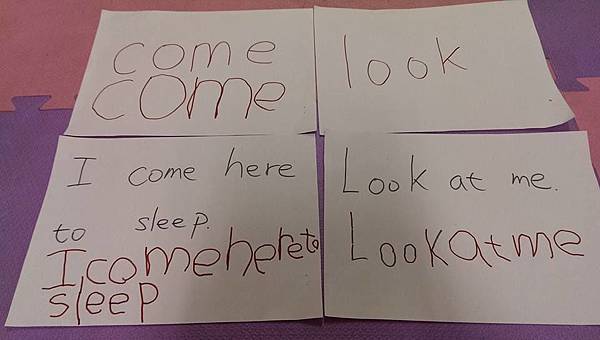 come
come
look
I come here
to sleep.
Icomehereto
sleep
Look at me.
Lookatme